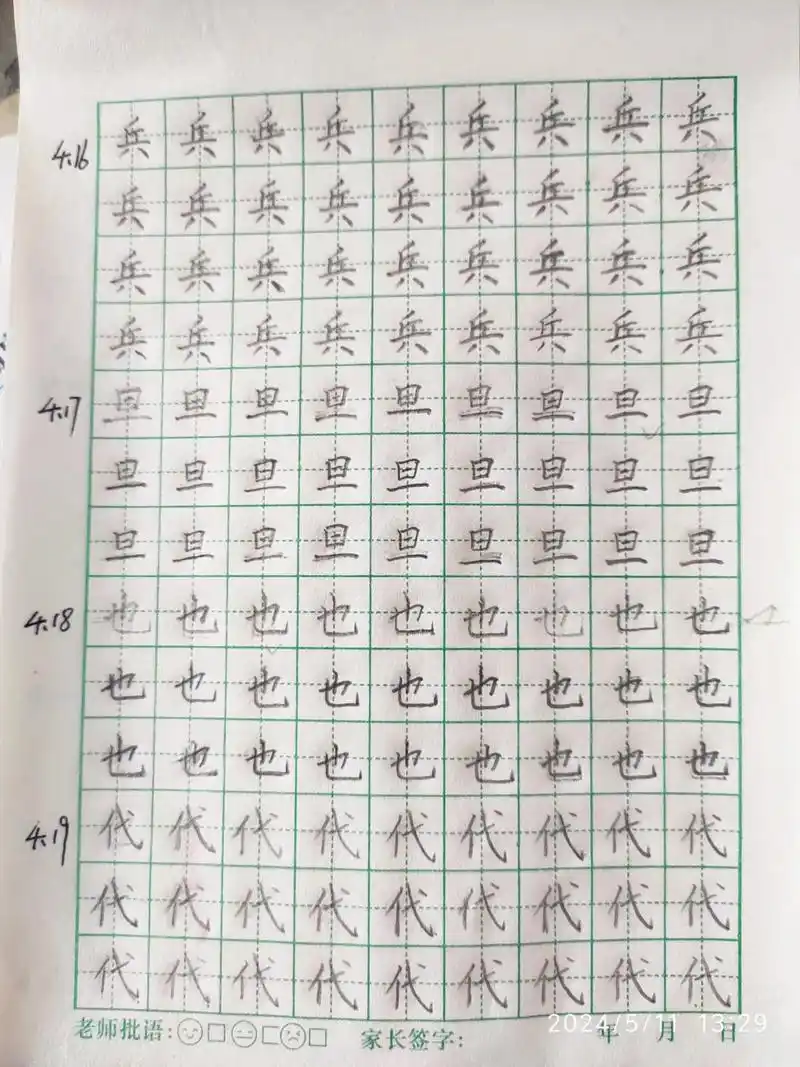 4.16 兵兵兵兵兵兵兵兵兵
兵兵兵兵兵兵兵兵兵
兵兵兵兵兵兵兵兵兵
兵兵兵兵兵兵兵兵兵
4.17 旦旦旦旦旦旦旦旦旦
旦旦旦旦旦旦旦旦旦
旦旦旦旦旦旦旦旦旦
4.18 也也也也也也也也也
也也也也也也也也也
也也也也也也也也也
4.19 代代代代代代代代代
代代代代代代代代代
代代代代代代代代代
老师批语: 家长签字: 年 月 日
2024/5/11 13:29